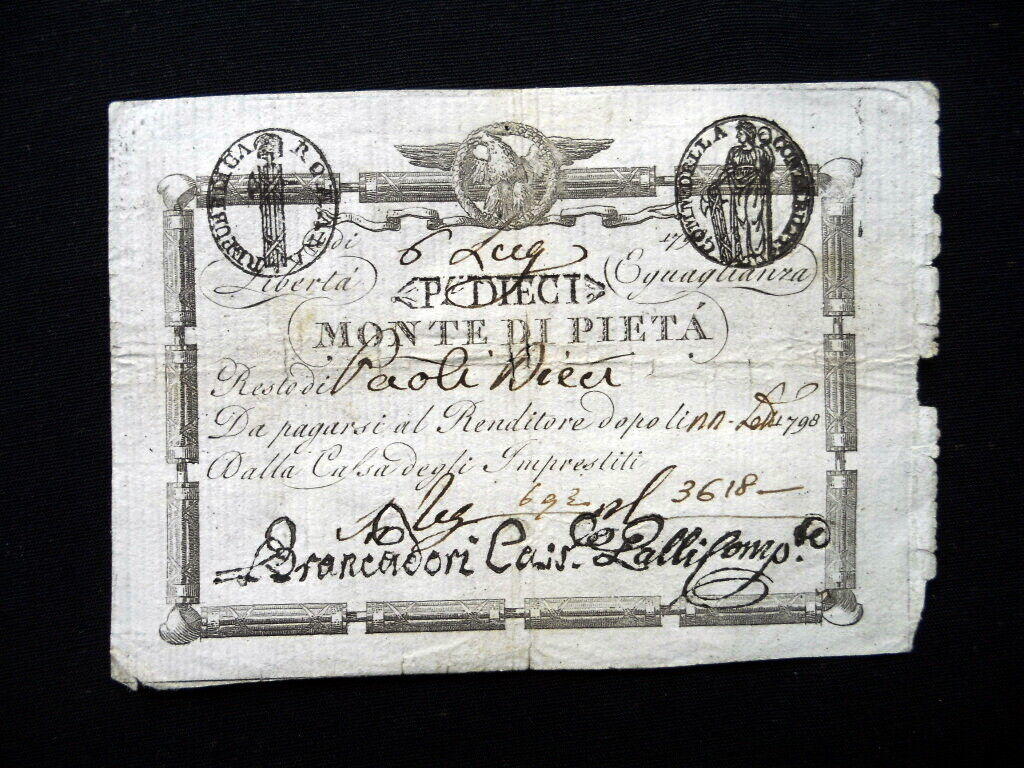 REPUBBLICA ROMANA
COMP. DELLA
di 6 Lug 179
Libertá
Eguaglianza
P. DIECI
MONTE DI PIETÁ
Resto di Paoli Dieci
Da pagarsi al Renditore dopo li 1798
Dalla Cassa degli Imprestiti
Reg 692 3618
Brancadori Cass.e Lalli Comp.